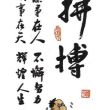 拼搏
事在人 不懈努力
事在天 辉煌人生